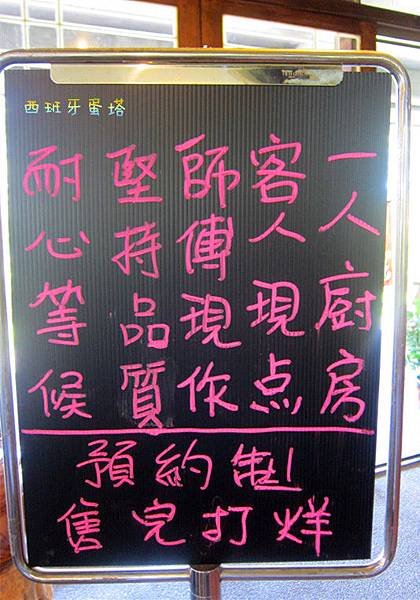 西班牙蛋塔
一人廚房
客人現点
師傅現作
堅持品質
耐心等候
預約制
售完打烊